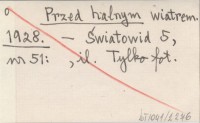 Przed halnym wiatrem.
1928. – Światowid 5,
nr 51: , il. Tylko fot.